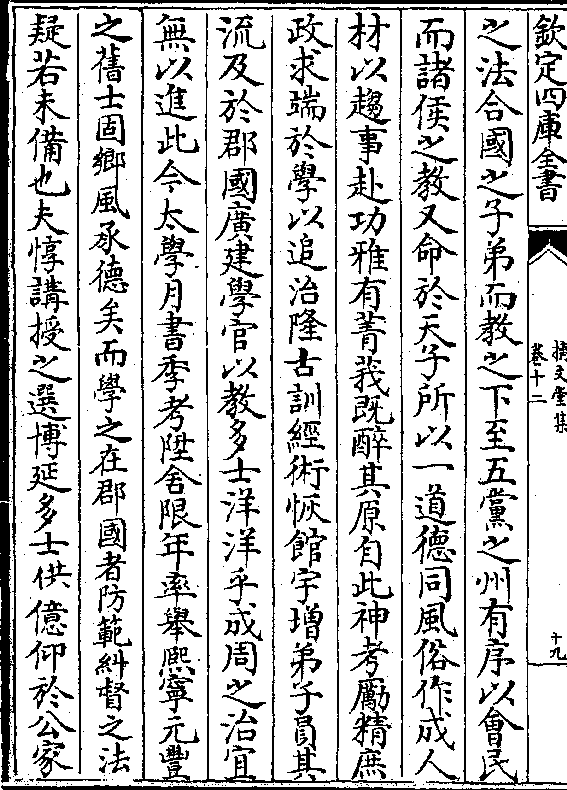 欽定四庫全書
摛文堂集
卷十二
十九
之法合國之子弟而教之下至五黨之州有序以會民
而諸侯之教又命於天子所以一道德同風俗作成人
材以趨事赴功雅有菁莪既醉其原自此神考勵精庶
政求端於學以追治隆古訓經術恢館宇增弟子員其
流及於郡國廣建學官以教多士洋洋乎成周之治宜
無以進此今太學月書季考陞舍限年率舉熙寧元豐
之舊士固鄉風承德矣而學之在郡國者防範糾督之法
疑若未備也夫惇講授之選博延多士供億仰於公家